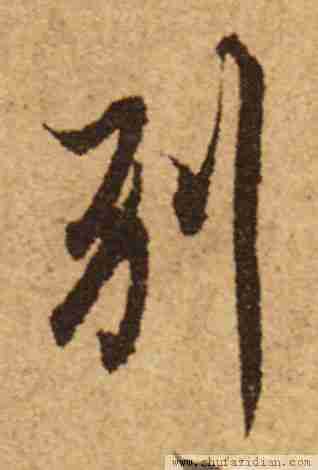 别
www.shufazidian.com